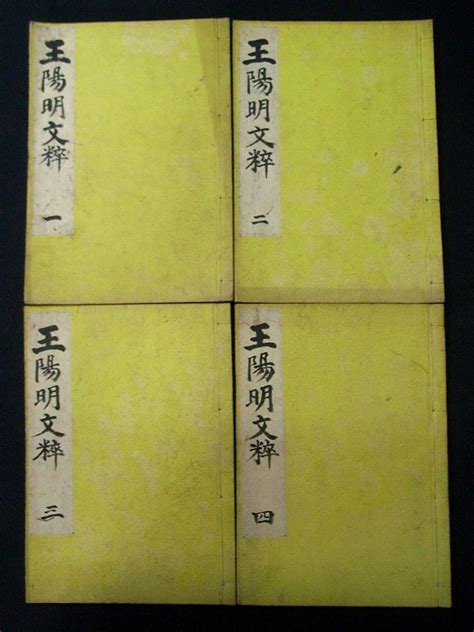 王陽明文粹 一
王陽明文粹 二
王陽明文粹 三
王陽明文粹 四